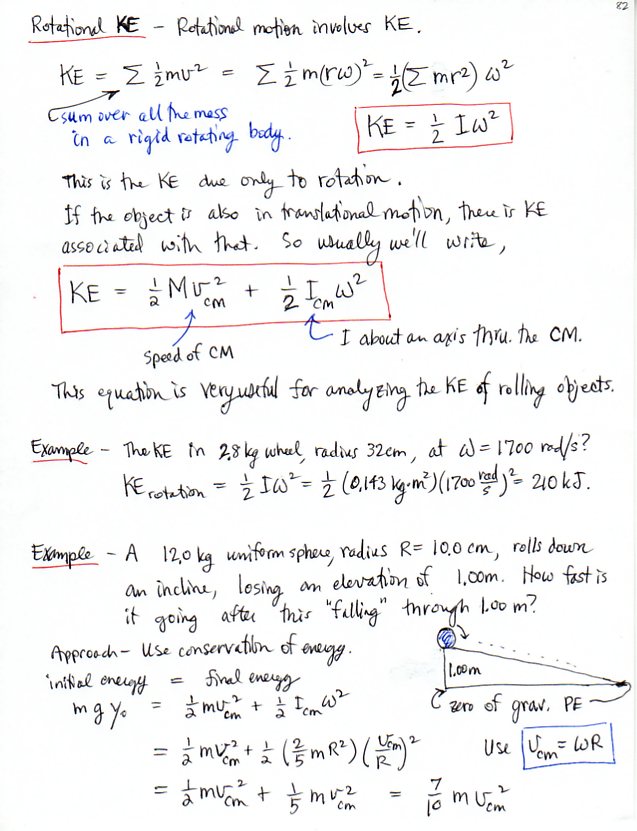 82
Rotational KE – Rotational motion involves KE.
KE = Σ ½mv² = Σ ½ m(rω)² = ½(Σ mr²) ω²
sum over all the mass
in a rigid rotating body.
KE = ½ Iω²
This is the KE due only to rotation.
If the object is also in translational motion, there is KE
associated with that. So usually we'll write,
KE = ½ Mv²cm + ½ Icm ω²
Speed of CM
I about an axis thru. the CM.
This equation is very useful for analyzing the KE of rolling objects.
Example – The KE in 2.8 kg wheel, radius 32cm, at ω = 1700 rad/s?
KE rotation = ½ Iω² = ½ (0.143 kg·m²)(1700 rad/s)² = 210 kJ.
Example – A 12.0 kg uniform sphere, radius R = 10.0 cm, rolls down
an incline, losing an elevation of 1.00m. How fast is
it going after this "falling" through 1.00 m?
Approach – Use conservation of energy.
initial energy = final energy
1.00m
zero of grav. PE
m g y₀ = ½ mv²cm + ½ Icm ω²
= ½ mv²cm + ½ (⅖ mR²) (vcm/R)²
Use vcm = ωR
= ½ mv²cm + ⅕ m v²cm = 7/10 m v²cm